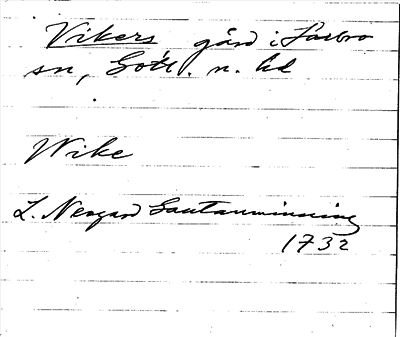 Vikers gård i Lärbro
sn, Gotl. n. hd
Wike
L. Neogard Gautauminning
1732